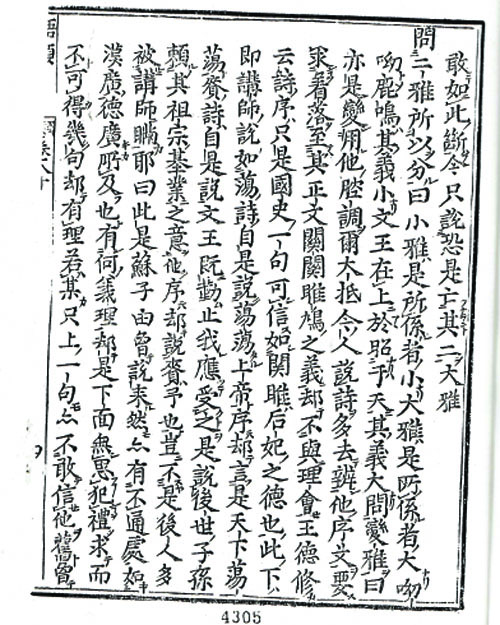 敢如此斷今只說恐是亡其二大雅
問二雅所以分曰小雅是所係者小大雅是所係者大呦
呦鹿鳴其義小文王在上於昭于天其義大問變雅曰
亦是變用他腔調爾大抵今人說詩多去辨他序文要
求着落至其正文關關雎鳩之義却不與理會王德修
云詩序只是國史一句可信如關雎后妃之德也此下
即講師說如蕩詩自是說蕩蕩上帝序却言是天下蕩
蕩賚詩自是說文王既勤止我應受之是說後世子孫
賴其祖宗基業之意他序却說賚予也豈不是後人多
被講師瞞耶曰此是蘇子由曾說來然亦有不通處如
漢廣德廣所及也有何義理却是下面無思犯禮求而
不可得幾句却有理若某只上一句亦不敢信他舊曾
語類
卷八十
4305